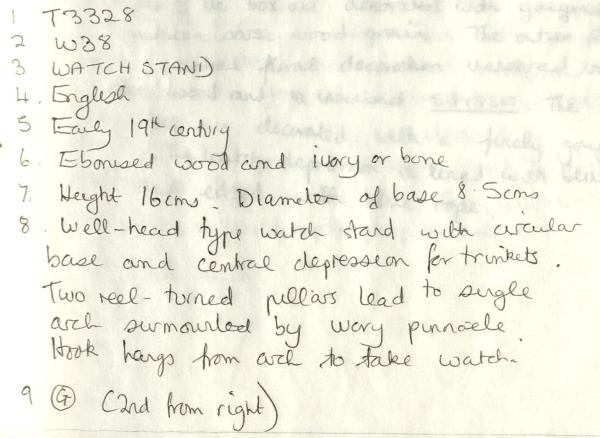 1 T3328
2 W38
3 WATCH STAND
4. English
5 Early 19th century
6. Ebonised wood and ivory or bone
7, Height 16cms. Diameter of base 8.5cms
8. Well-head type watch stand with circular
base and central depression for trinkets.
Two reel-turned pillars lead to single
arch surmounted by ivory pinnacle.
Hook hangs from arch to take watch.
9 G (2nd from right)